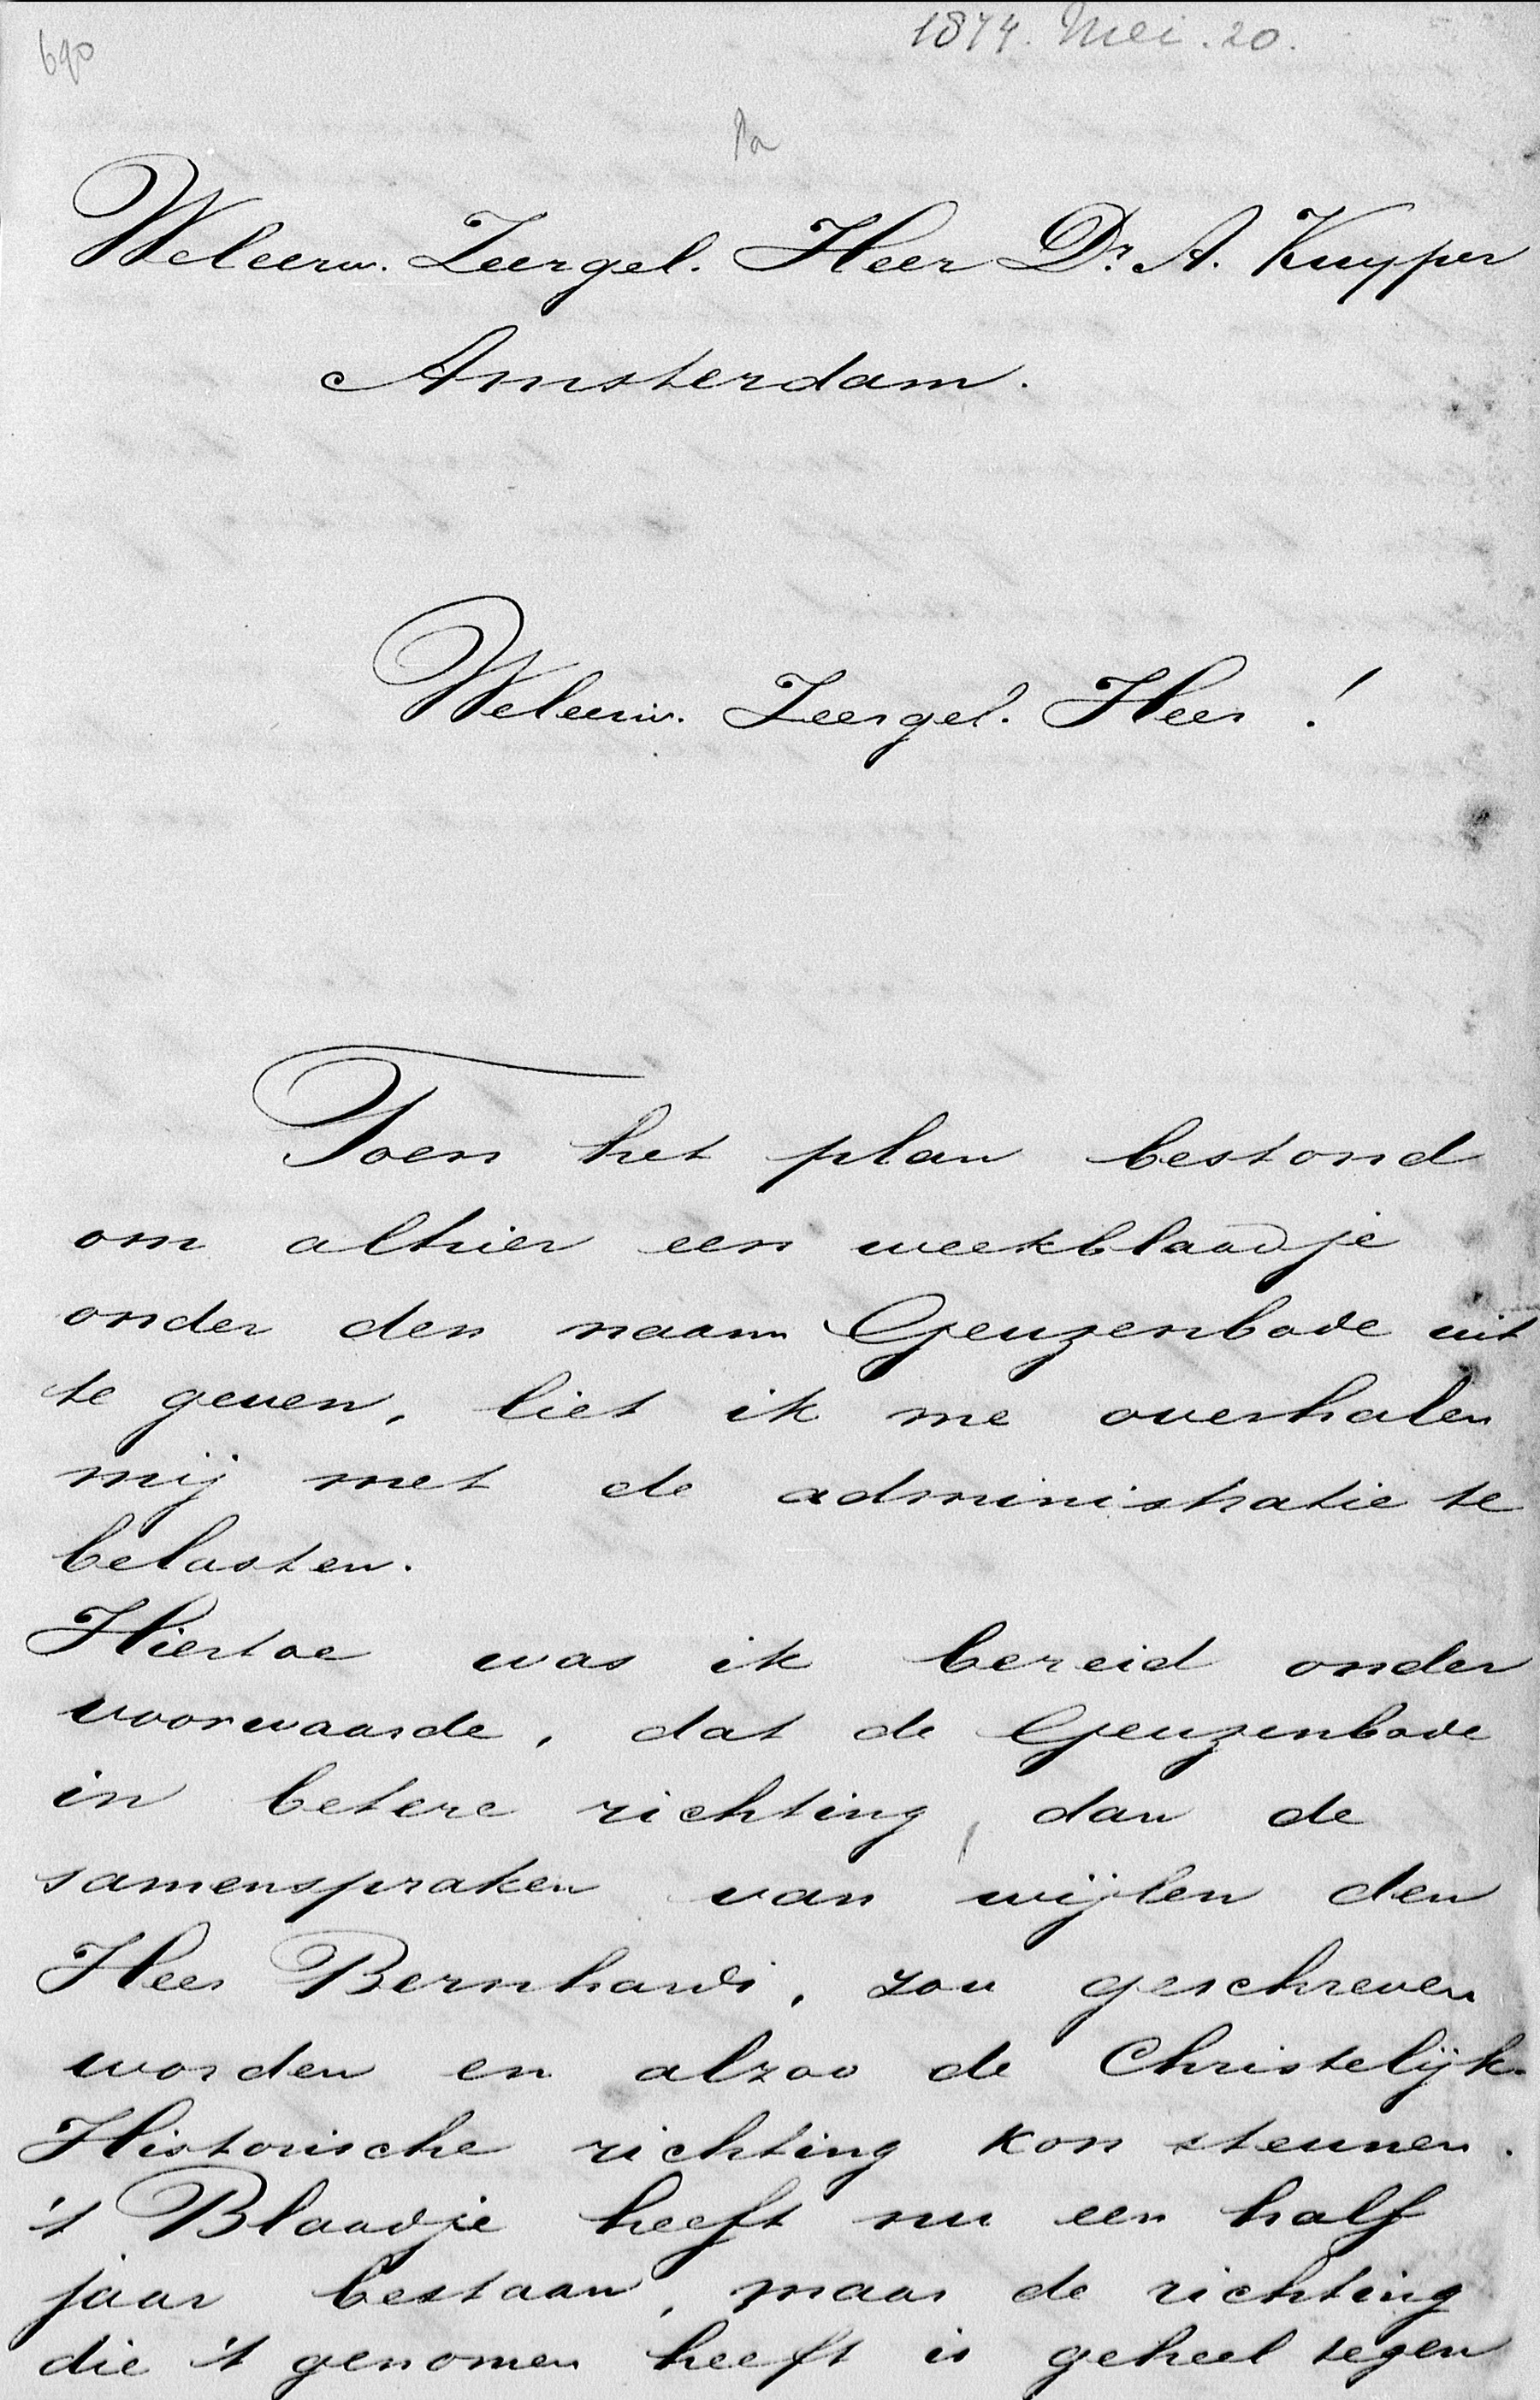 1874. Mei. 20.
690
Weleerw. Zeergel. Heer Dr. A. Kuyper
Amsterdam.
Weleerw. Zeergel. Heer !
Toen het plan bestond
om alhier een weekblaadje
onder den naam Geuzenbode uit
te geven, liet ik me overhalen
mij met de administratie te
belasten.
Hiertoe was ik bereid onder
voorwaarde, dat de Geuzenbode
in betere richting, dan de
samenspraken van wijlen den
Heer Bernhardi, zou geschreven
worden en alzoo de Christelijk-
Historische richting kon steunen.
't Blaadje heeft nu een half
jaar bestaan, maar de richting
die 't genomen heeft is geheel tegen